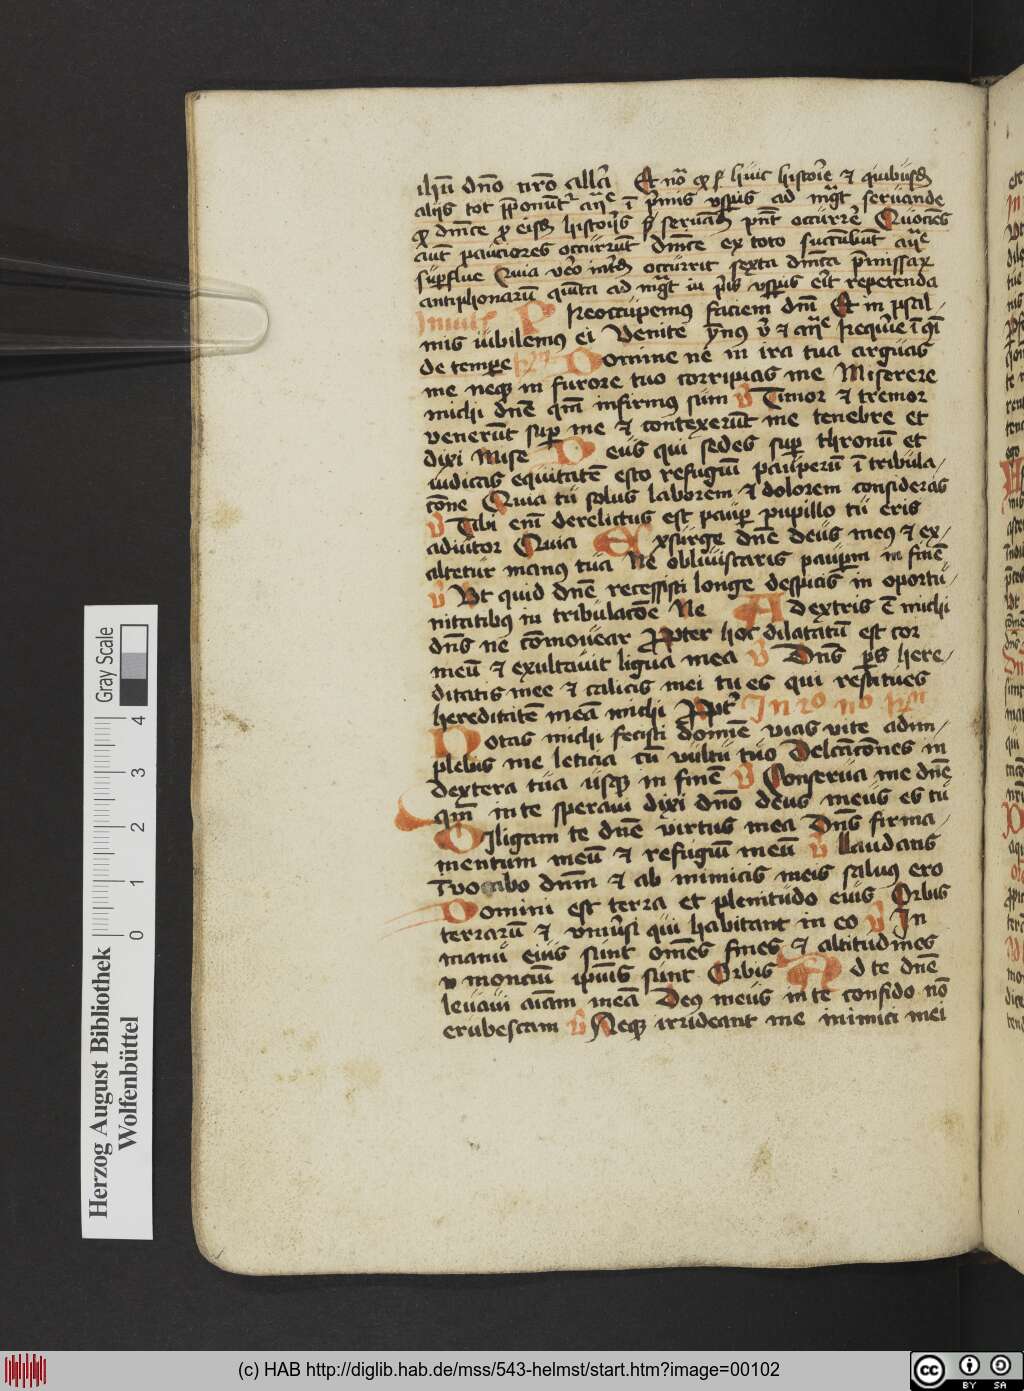 dn̄o nr̄o all'a Et no͞ huic historie ⁊ quibusdā
aliis tot ī p̄mis vesperis ad mgt̄ servande
p eisdē historiis p̄nt occurrē Quociens
aut̄ pauciores occurrūt dn̄ice ex toto succūbūt
superflue Quia vero occurrit sexta
antiphonarū ad mgt̄ in erit repetenda
Preoccupemus faciem dn̄i Et in psal-
mis iubilemus ei Venite ymnus
de tempore Domine ne in ira tua arguas
me neq̄ in furore tuo corripias me Miserere
michi dn̄e qm̄ infirmus sum v̄ Timor ⁊ tremor
venerūt sup me ⁊ contexerūt me tenebre et
dixi Mise Deus qui sedes sup thronū et
iudicas equitatē esto refugiū pauperū ī tribula-
cōne Quia tu solus laborem ⁊ dolorem consideras
v̄ Tibi enī derelictus est paup pupillo tu eris
adiutor Quia Exsurge dn̄e deus meus ⁊ ex-
altetur manus tua Ne obliviscaris paupum in finē
v̄ Ut quid dn̄e recessisti longe despicis in oportu-
nitatibus in tribulacōe Ne A dextris ē michi
dn̄s ne cōmovear Propter hoc dilatatū est cor
meū ⁊ exultavit ligua mea v̄ Dn̄s pars here-
ditatis mee ⁊ calicis mei tu es qui restitues
hereditatē meā michi Propt' In io no
Notas michi fecisti domīe vias vite adim-
plebis me leticia cū vultu tuo Delc̄ac̄ones in
dextera tua usq̄ in finē v̄ Conserva me dn̄e
qm̄ in te speravi dixi dn̄o deus meus es tu
Diligam te dn̄e virtus mea Dn̄s firma-
mentum meū ⁊ refugiū meū v̄ Laudans
Invocabo dn̄m ⁊ ab inimicis meis salvus ero
Domini est terra et plenitudo eius Orbis
terrarū ⁊ univ̄si qui habitant in eo v̄ In
manu eius sunt om̄es fines ⁊ altitudines
monciū ipsius sunt Orbis Ad te dn̄e
levavi aīam meā Deus meus in te confido nō
erubescam v̄ Neq̄ irrideant me inimici mei
Herzog August Bibliothek
Wolfenbüttel
Gray Scale
0 1 2 3 4
(c) HAB http://diglib.hab.de/mss/543-helmst/start.htm?image=00102
cc BY SA